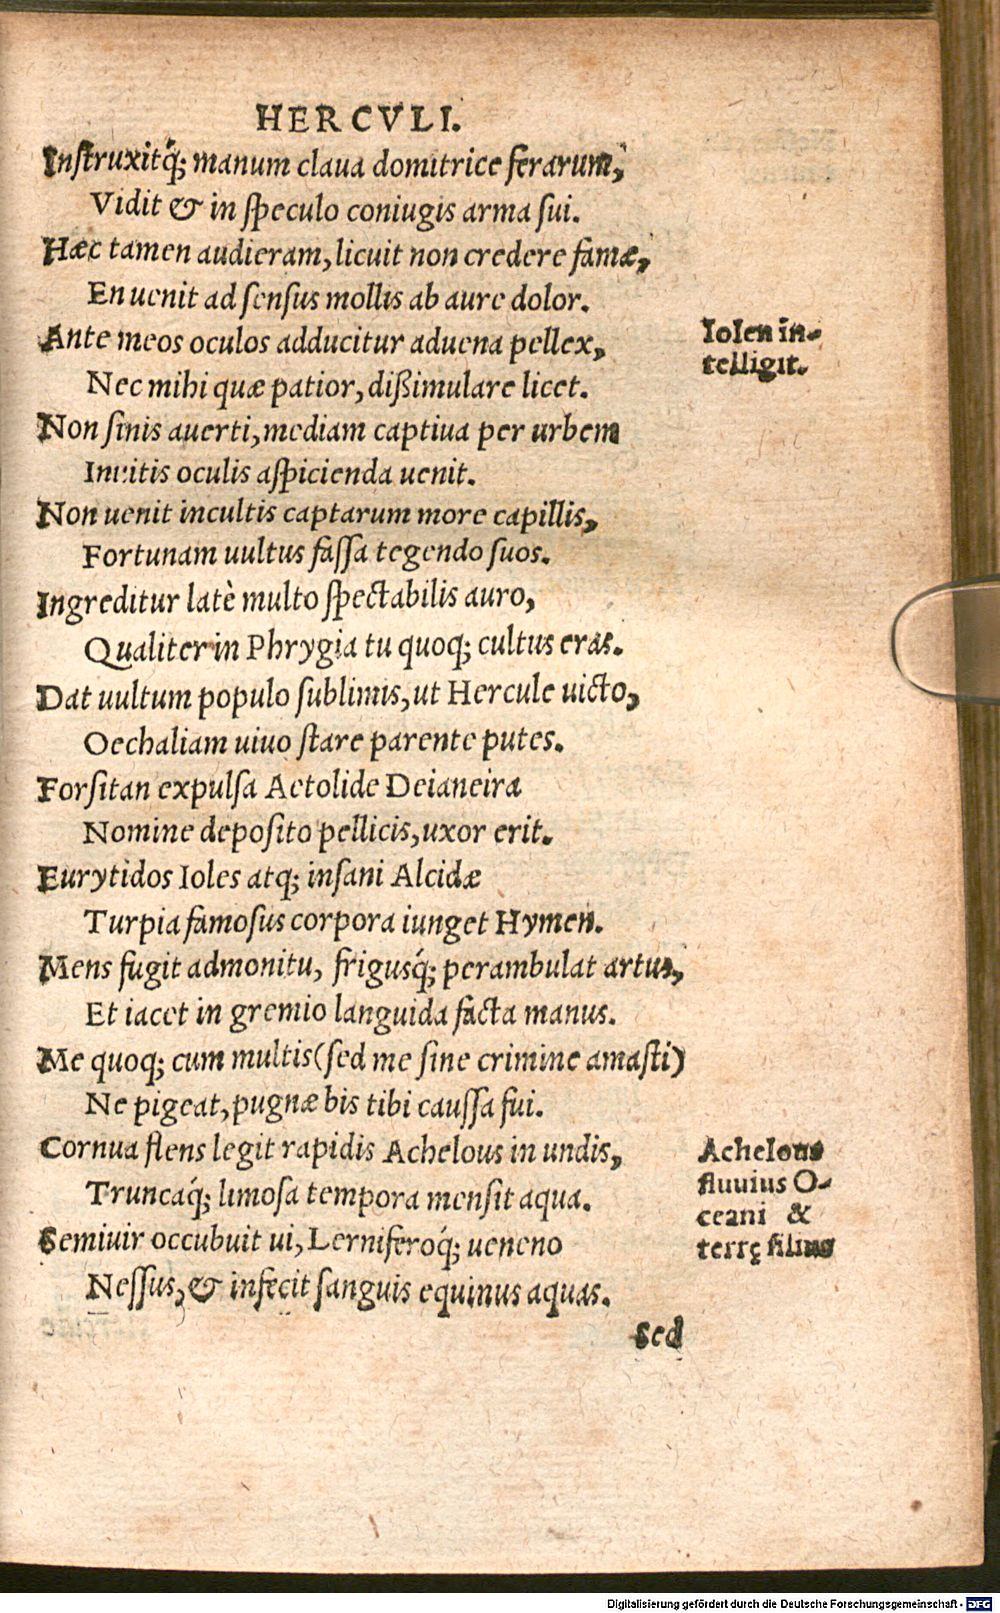 HERCVLI.
Instruxitq́; manum claua domitrice ferarum,
Vidit & in speculo coniugis arma sui.
Hæc tamen audieram, licuit non credere famæ,
En uenit ad sensus mollis ab aure dolor.
Ante meos oculos adducitur aduena pellex,
Nec mihi quæ patior, dißimulare licet.
Iolen in-
telligit.
Non sinis auerti, mediam captiua per urbem
Inuitis oculis aspicienda uenit.
Non uenit incultis captarum more capillis,
Fortunam uultus fassa tegendo suos.
Ingreditur latè multo spectabilis auro,
Qualiter in Phrygia tu quoq; cultus eras.
Dat uultum populo sublimis, ut Hercule uicto,
Oechaliam uiuo stare parente putes.
Forsitan expulsa Aetolide Deianeira
Nomine deposito pellicis, uxor erit.
Eurytidos Ioles atq; insani Alcidæ
Turpia famosus corpora iunget Hymen.
Mens fugit admonitu, frigusq́; perambulat artus,
Et iacet in gremio languida facta manus.
Me quoq; cum multis (sed me sine crimine amasti)
Ne pigeat, pugnæ bis tibi caussa fui.
Cornua flens legit rapidis Achelous in undis,
Truncaq́; limosa tempora mensit aqua.
Semiuir occubuit ui, Lerniferoq́; ueneno
Nessus, & infecit sanguis equinus aquas.
Achelous
fluuius O-
ceani &
terrę filius
sed
Digitalisierung gefördert durch die Deutsche Forschungsgemeinschaft - DFG